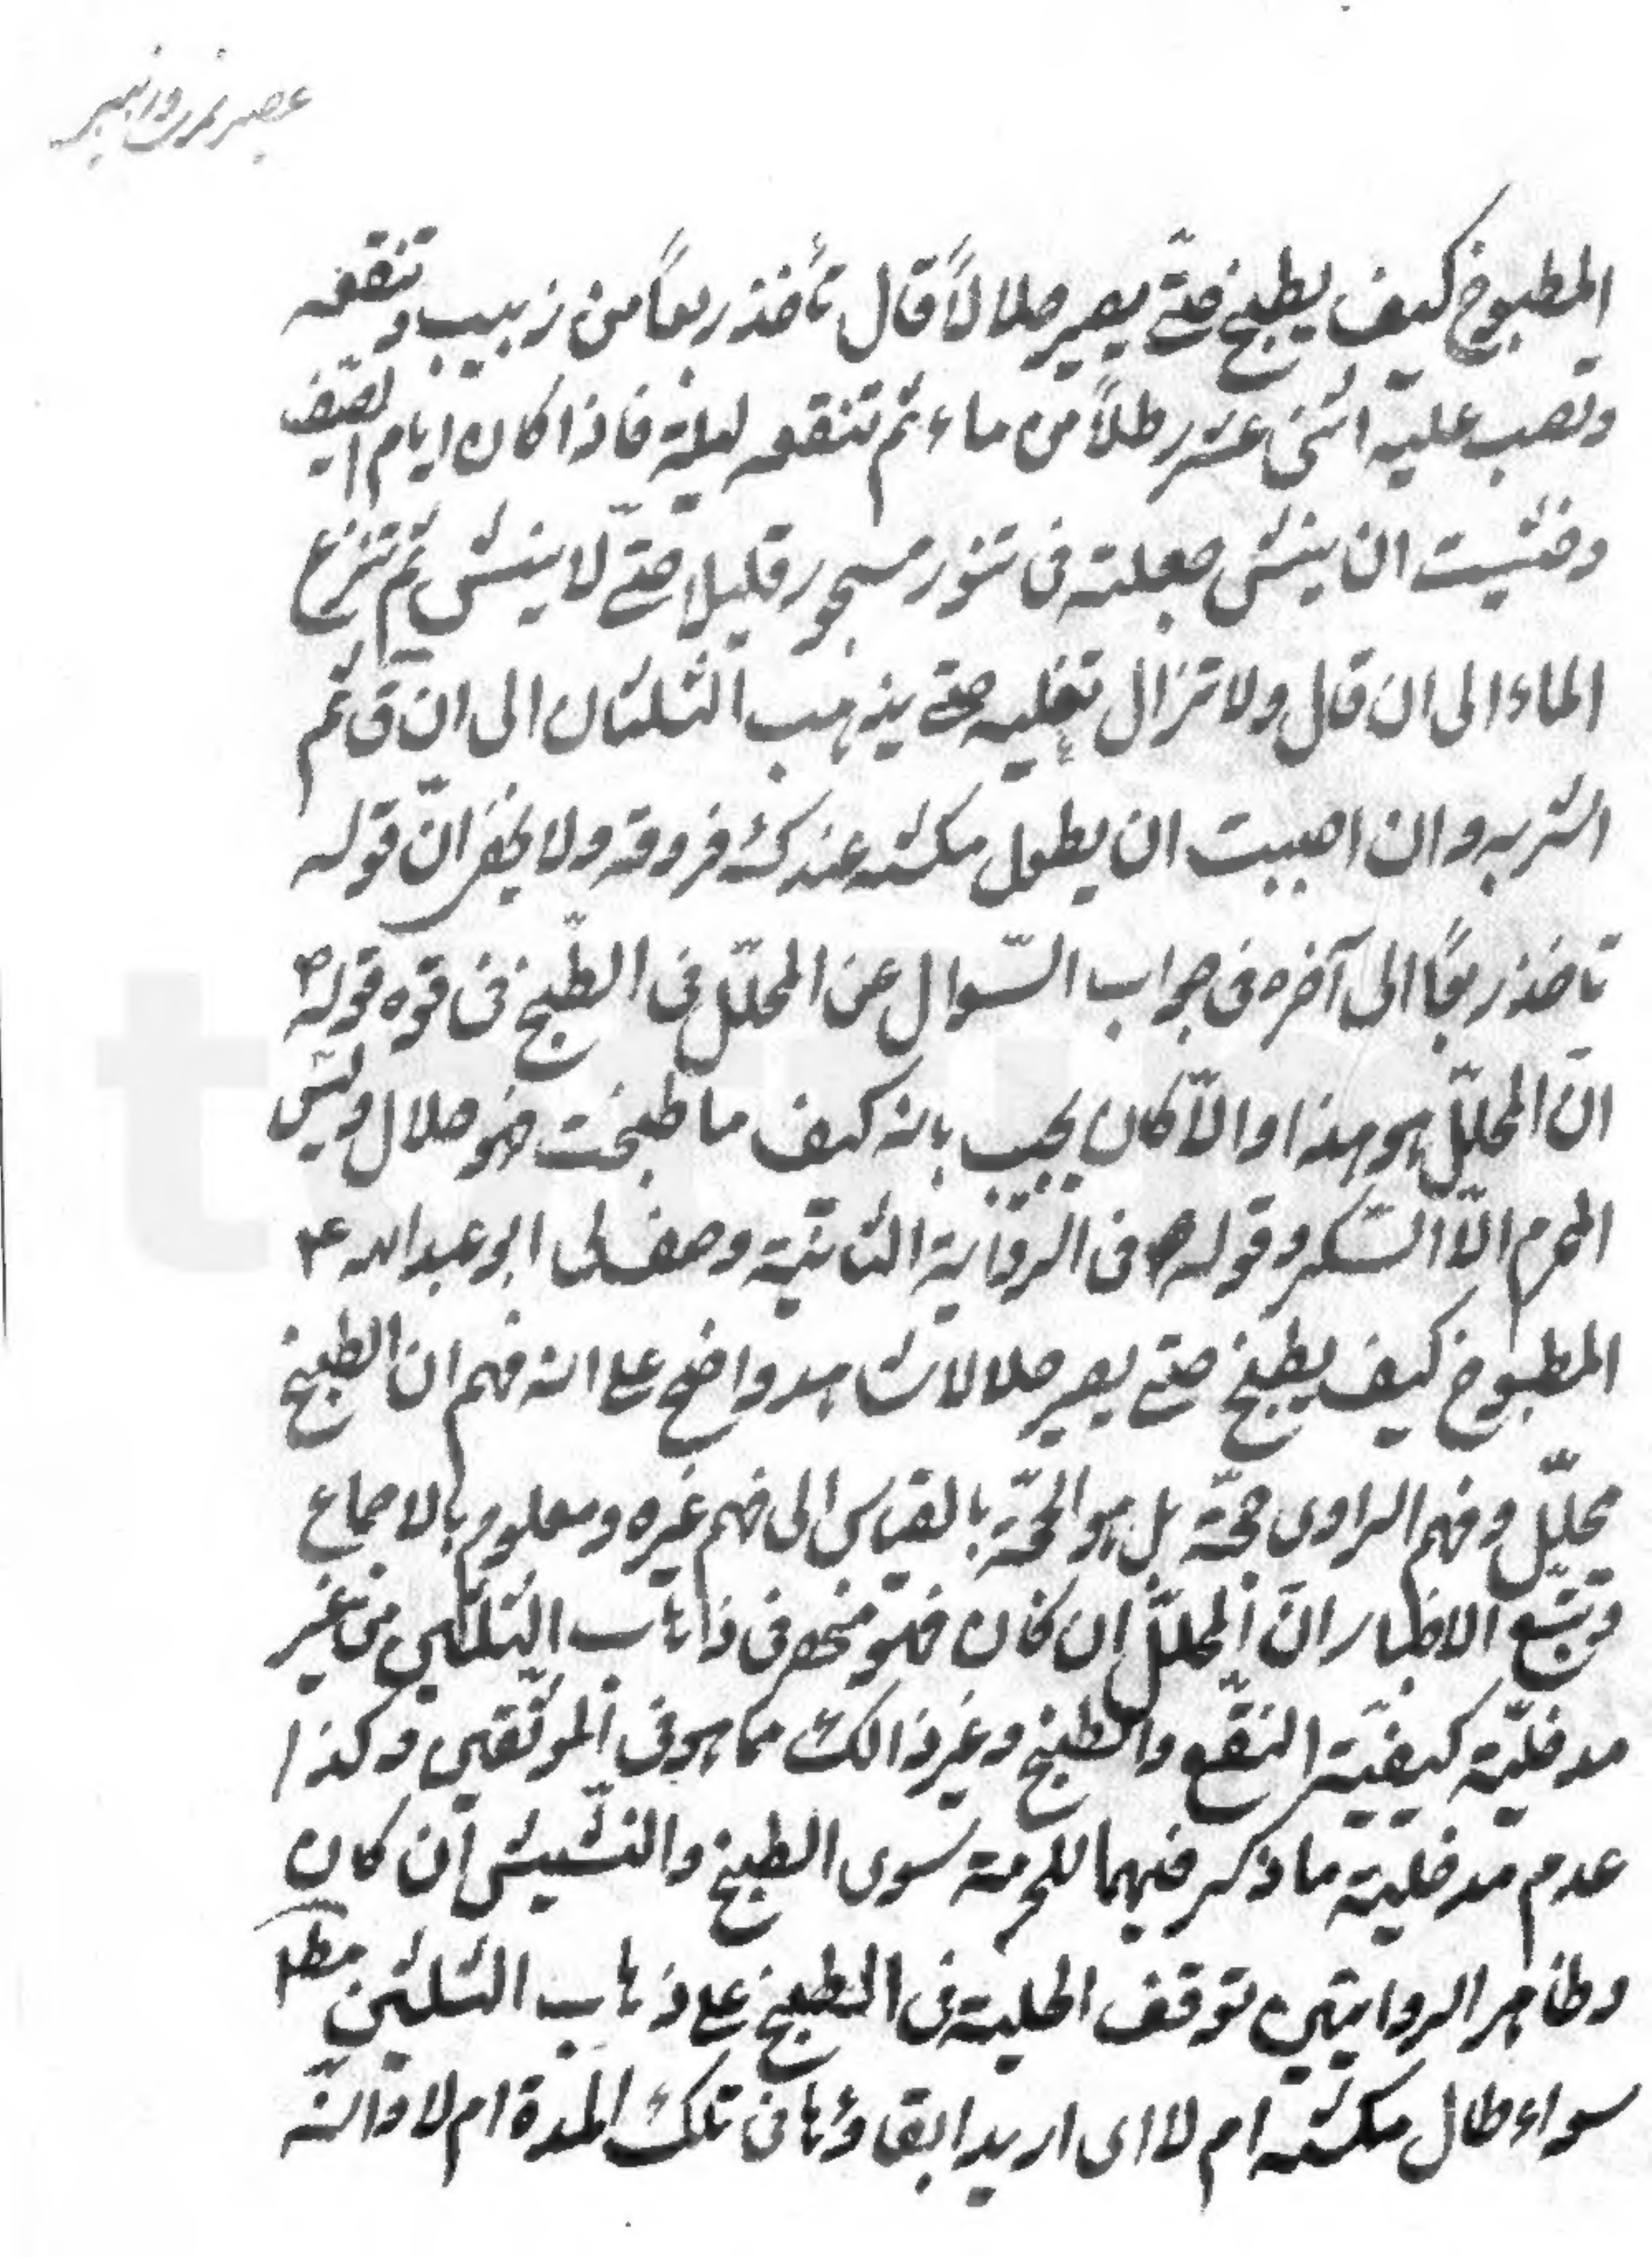 عصير تمری وزبیبی
المطبوخ كيف يطبخ حتّى يصير حلالاً قال تأخذ ربعاً من زبيب وتنقيه
وتصب عليه اثنى عشر رطلاً من ماء ثم تنقعه ليلة فاذا كان ايام الصيف
وخشيت ان ينش جعلته فى تنور مسجور قليلا حتّى لا ينش ثم تنزع
الماء الى ان قال ولا تزال تغليه حتى يذهب الثلثان الى ان ق ثم
اشربه وان احببت ان يطول مكثه عندك فروقه ولا يخفى انّ قوله
تاخذ ربعاً الى آخره فى جواب السّوال عن المحلّل فى الطّبخ فى قوه قوله ع
انّ المحلّل هو هذا والاّ كان يجيب بانه كيف ما طبخت فهو حلال وليس
المحرم الاّ المسكر وقوله فى الرّواية الثانية وصف لى ابو عبد الله ع
المطبوخ كيف يطبخ حتى يصير حلالا شاهد واضح على انه فهم ان الطبخ
محلّل وفهم الراوى حجّة بل هو الحجّة بالقياس الى فهم غيره ومعلوم بالاجماع
وتتبّع الاخبار انّ المحلّل ان كان فهو منحصر فى ذهاب الثلثين من غير
مدخليّة كيفيّة النقع والطبخ وغير ذالك مما هو فى الموثقين وكذا
عدم مدخلية ما ذكر فيهما للحرمة سوى الطبخ والنشيش ان كان
وظاهر الروايتين توقف الحلية فى الطبخ على ذهاب الثلثين مط
سواء طال مكثه ام لا اى اريد ابقاؤها فى تلك المدة ام لا وانه